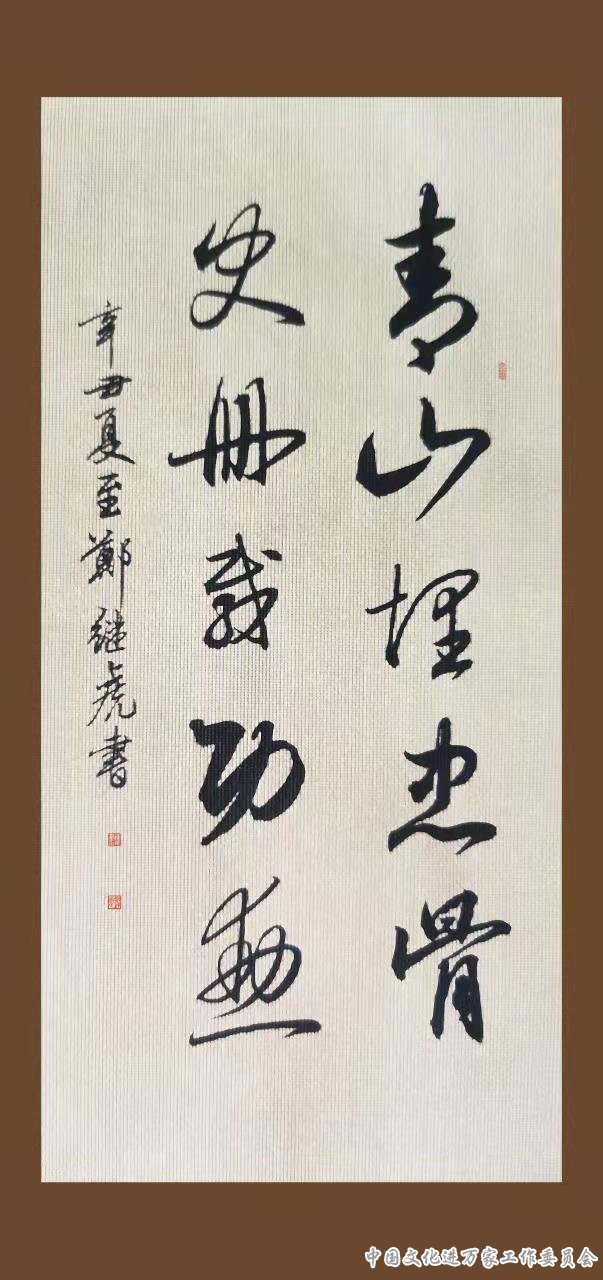 青山埋忠骨
史册载功勋
辛丑夏至鄭继虎書
中国文化进万家工作委员会